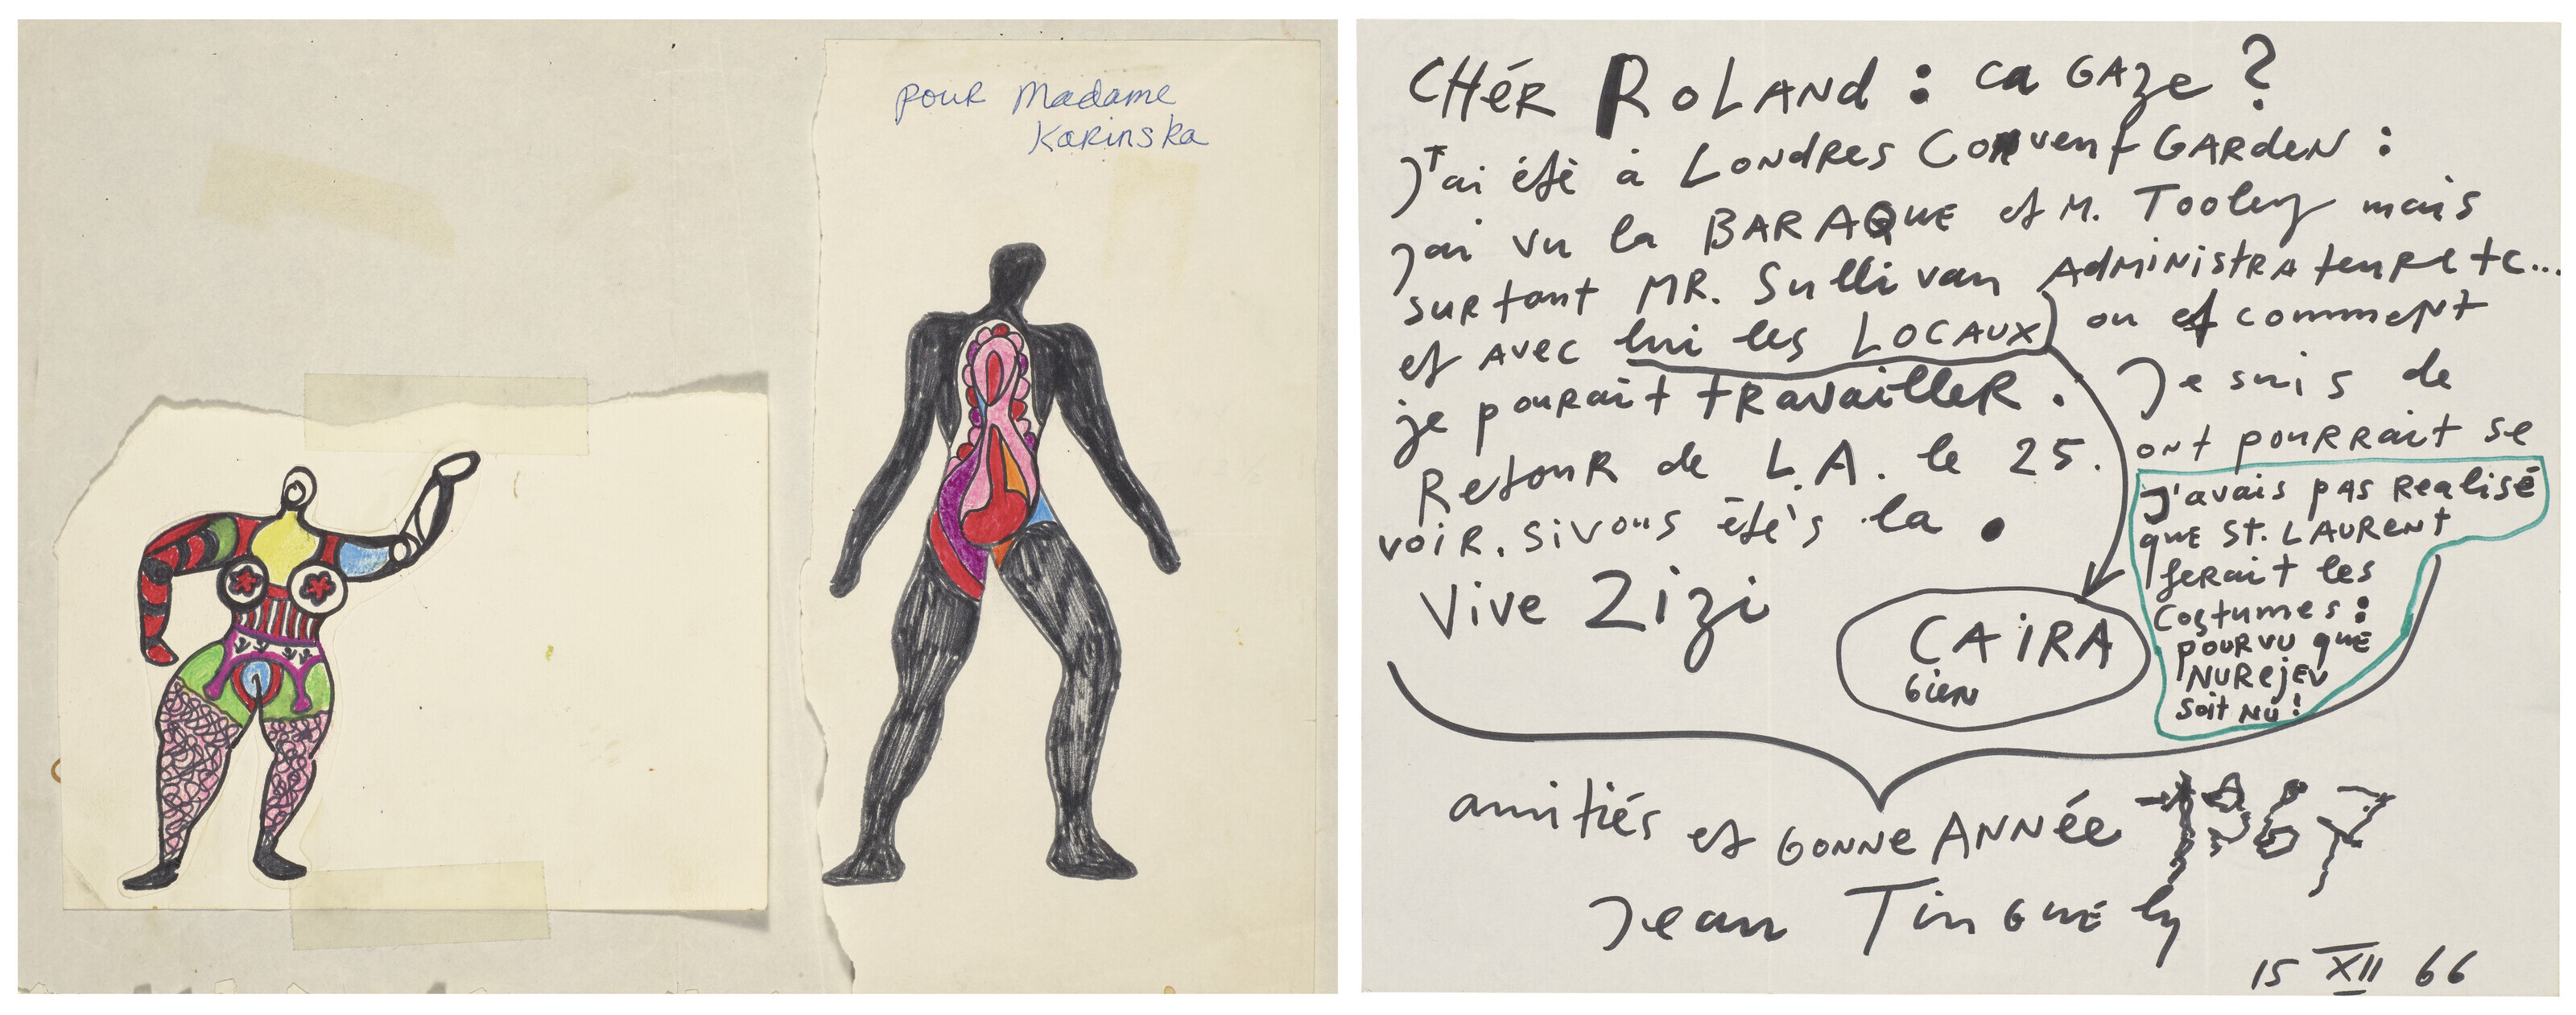 pour Madame
Karinska
CHÉR ROLAND : ca GAZe ?
J'ai été à LONdRES CONvent GARdeN :
j'ai vu la BARAQUE et M. Tooley mais
surtout MR. Sullivan AdMiNistRAteuR etc...
et avec lui les LOCAUX ou et comment
je pourait tRavailleR. Je suis de
Retour de L.A. le 25. ont pourrait se
voir. Si vous étés la .
Vive Zizi
CAiRA
bien
J'avais pas Realisé
que ST. LAURENT
ferait les
Costumes :
pourvu que
NUREjEV
soit NU !
amitiés et bonne ANNée
Jean Tinguely
15 XII 66